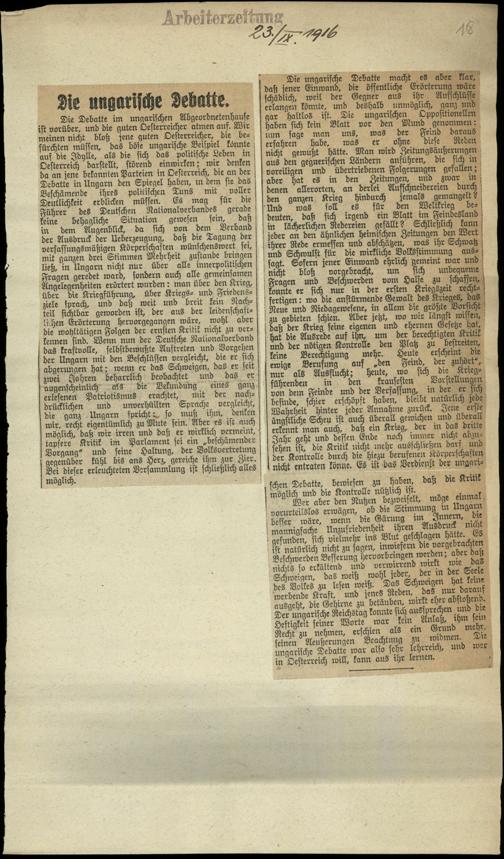 Arbeiterzeitung
23./IX. 1916
18
Die ungarische Debatte.
Die Debatte im ungarischen Abgeordnetenhause
ist vorüber, und die guten Oesterreicher atmen auf. Wir
meinen nicht bloß jene guten Oesterreicher, die be-
fürchten müssen, das böse ungarische Beispiel könnte
auf die Idylle, als die sich das politische Leben in
Oesterreich darstellt, störend einwirken; wir denken
da an jene bekannten Parteien in Oesterreich, die an der
Debatte in Ungarn den Spiegel haben, in dem sie das
Beschämende ihres politischen Tuns mit voller
Deutlichkeit erblicken müssen. Es mag für die
Führer des Deutschen Nationalverbandes gerade
keine behagliche Situation gewesen sein, daß
in dem Augenblick, da sich von dem Verband
der Ausdruck der Ueberzeugung, daß die Tagung der
verfassungsmäßigen Körperschaften wünschenswert sei,
mit ganzen drei Stimmen Mehrheit zustande bringen
ließ, in Ungarn nicht nur über alle innerpolitischen
Fragen geredet ward, sondern auch alle gemeinsamen
Angelegenheiten erörtert wurden: man über den Krieg,
über die Kriegführung, über Kriegs- und Friedens-
ziele sprach, und daß weit und breit kein Nach-
teil sichtbar geworden ist, der aus der leidenschaft-
lichen Erörterung hervorgegangen wäre, wohl aber
die wohltätigen Folgen der ernsten Kritik nicht zu ver-
kennen sind. Wenn nun der Deutsche Nationalverband
das kraftvolle, selbstbewußte Auftreten und Vorgehen
der Ungarn mit den Beschlüssen vergleicht, die er sich
abgerungen hat; wenn er das Schweigen, das er seit
zwei Jahren beharrlich beobachtet und das er
augenscheinlich als die Bekundung eines ganz
erlesenen Patriotismus erachtet, mit der nach-
drücklichen und unverhüllten Sprache vergleicht,
die ganz Ungarn spricht, so muß ihm, denken
wir, recht eigentümlich zu Mute sein. Aber es ist auch
möglich, daß wir irren und daß er wirklich vermeint,
tapfere Kritik im Parlament sei ein „beschämender
Vorgang“ und seine Haltung, der Volksvertretung
gegenüber kühl bis ans Herz, gereiche ihm zur Zier.
Bei dieser erleuchteten Versammlung ist schließlich alles
möglich.
Die ungarische Debatte macht es aber klar,
daß jener Einwand, die öffentliche Erörterung wäre
schädlich, weil der Gegner aus ihr Aufschlüsse
erlangen könnte, und deshalb unmöglich, ganz und
gar haltlos ist. Die ungarischen Oppositionellen
haben sich kein Blatt vor den Mund genommen:
nun sage man uns, was der Feind daraus
erfahren habe, was er ohne diese Reden
nicht gewußt hätte. Man wird Zeitungsäußerungen
aus den gegnerischen Ländern anführen, die sich in
voreiligen und übertriebenen Folgerungen gefallen;
aber hat es in den Zeitungen, und zwar in
denen allerorten, an derlei Aufschneidereien durch
den ganzen Krieg hindurch jemals gemangelt?
Und was soll es für den Weltkrieg be-
deuten, daß sich irgend ein Blatt im Feindesland
in lächerlichen Redereien gefällt? Schließlich kann
jeder an den ähnlichen heimischen Zeitungen den Wert
ihrer Rede ermessen und abschätzen, was ihr Schwatz
und Schwulst für die wirkliche Volksstimmung aus-
sagt. Sofern jener Einwand ehrlich gemeint war und
nicht bloß vorgebracht, um sich unbequeme
Fragen und Beschwerden vom Halse zu schaffen,
konnte er sich nur in der ersten Kriegszeit recht-
fertigen: wo die anstürmende Gewalt des Krieges, das
Neue und Niedagewesene, in allem die größte Vorsicht
zu gebieten schien. Aber jetzt, wo wir längst wissen,
daß der Krieg seine eigenen und ehernen Gesetze hat,
hat die Ausrede auf ihn, um der berechtigten Kritik
und der nötigen Kontrolle den Platz zu bestreiten,
keine Berechtigung mehr. Heute erscheint die
ewige Berufung auf „den Feind, der zuhört“,
nur als Ausflucht; heute, wo sich die Krieg-
führenden in den krausesten Vorstellungen
von dem Feinde und der Verfassung, in der er sich
befinde, schier erschöpft haben, bleibt natürlich jede
Wahrheit hinter jener Annahme zurück. Jene erste
ängstliche Scheu ist auch überall gewichen und überall
erkennt man auch, daß ein Krieg, der in das dritte
Jahr geht und dessen Ende noch immer nicht abzu-
sehen ist, die Kritik nicht mehr ausschließen darf und
der Kontrolle durch die hiezu berufenen Körperschaften
nicht entraten könne. Es ist das Verdienst der ungari-
schen Debatte, bewiesen zu haben, daß die Kritik
möglich und die Kontrolle nützlich ist.
Wer aber den Nutzen bezweifelt, möge einmal
vorurteilslos erwägen, ob die Stimmung in Ungarn
besser wäre, wenn die Gärung im Innern, die
mannigfache Unzufriedenheit ihren Ausdruck nicht
gefunden, sich vielmehr ins Blut geschlagen hätte. Es
ist natürlich nicht zu sagen, inwiefern die vorgebrachten
Beschwerden Besserung hervorbringen werden; aber daß
nichts so erkältend und verwirrend wirkt wie das
Schweigen, das weiß wohl jeder, der in der Seele
des Volkes zu lesen weiß. Das Schweigen hat keine
werbende Kraft, und jenes Reden, das nur darauf
ausgeht, die Gehirne zu betäuben, wirkt eher abstoßend.
Der ungarische Reichstag konnte sich aussprechen und die
Heftigkeit seiner Worte war kein Anlaß, ihm sein
Recht zu nehmen, erschien als ein Grund mehr,
seinen Aeußerungen Beachtung zu widmen. Die
ungarische Debatte war also sehr lehrreich, und wer
in Oesterreich will, kann aus ihr lernen.